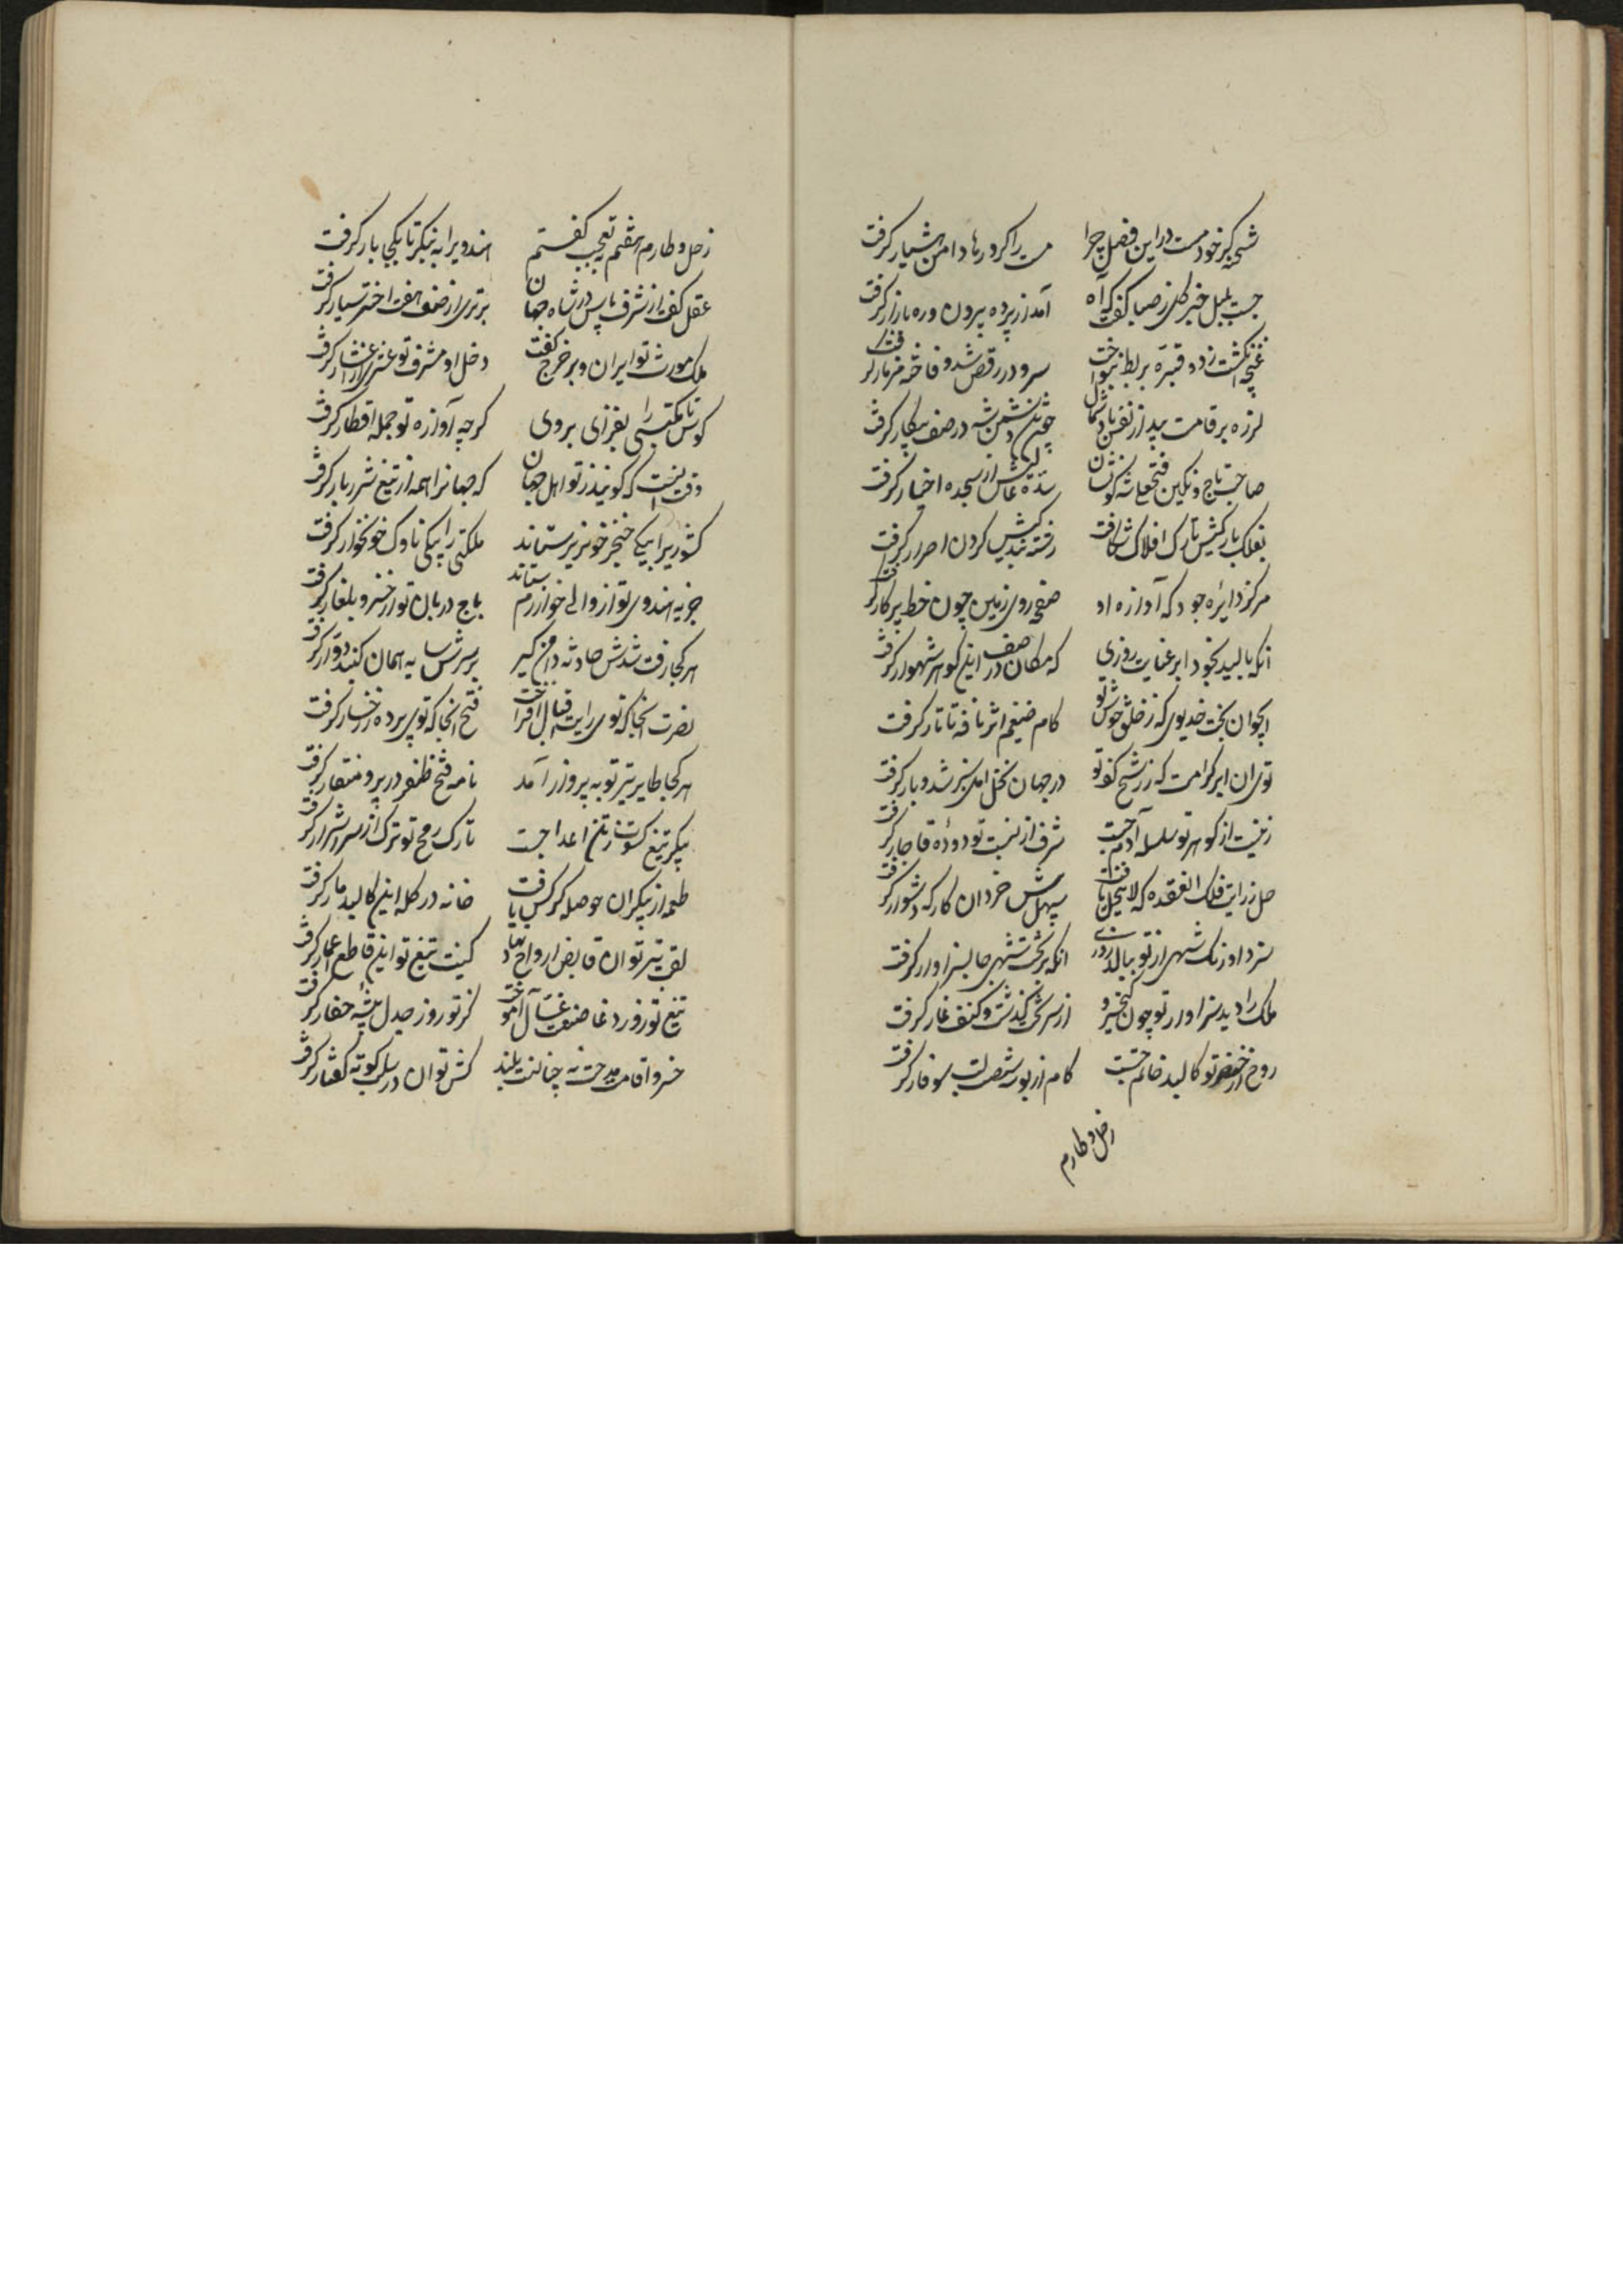 شحنه کر خود مست در این فصل چرا مست را کرد رها دامن هشیار کرفت
جست بلبل خبر کل ز صبا گفت که آه آمد از پرده برون و ره بازار کرفت
غنچه انکشت زد و قبره بربط بنواخت سرو در رقص شد و فاخته مزمار کرفت
لرزه بر قامت بید از نفس باد شمال چون تن دشمن شه در صف پیکار کرفت
صاحب تاج و نکین فتحعلی شه که ز شان سده‌اش از سجده اخیار کرفت
بفلک بارکیش تارک افلاک شکافت رشته بندکیش کردن احرار کرفت
مرکز دایره جود که آوازه او صفحه روی زمین چون خط پرکار کرفت
آنکه بالید بخود ابر عنایت روزی که مکان در صدف این کوهر شهوار کرفت
ایجوان بخت خدیوی که ز خلق خوش تو کام ضیغم اثر نافه تاتار کرفت
توی ان ابر کرامت که ز رشح کف تو در جهان نخل امل سبز شد و بار کرفت
زینت از کوهر تو سلسله آدم جست شرف از نسبت تو دوده قاجار کرفت
حل ز رایت فلک العقده که لاینحل یافت سهل پیش خرد ان کار که دشوار کرفت
سزد اورنک شهی از تو ببالد روزی انکه بر تخت شهی جا بسزاوار کرفت
ملک را دید سزاوار تو چون کیخسرو از سر تخت گذشت و کنف غار کرفت
روح از خنصر تو کالبد خاتم جست کام از بوسه شصت لب سوفار کرفت
زحل و طارم
زحل و طارم هفتم تعجب کفتم هندویرا به نیکر تا بکجا بار کرفت
عقل کفت از شرف پاس در شاه جهان برتری از صف هفت اختر سیار کرفت
ملک موروث تو ایران و بر خرج کفت دخل او مشرف تو عشری از اعشار کرفت
کوس نا مکتسبی را بغزای بروی کرچه آوازه تو جمله اقطار کرفت
وقت انست که کویند ز تو اهل جهان که جهانرا همه از تیغ شرربار کرفت
کشوریرا بیکی خنجر خونریز ستاند ملکتی را بیکی ناوک خونخوار کرفت
جزیه هندوی تو از والی خوارزم ستاند باج دربان تو از خسرو بلغار کرفت
هر کجا رفت شدش حادثه دامن کیر بر سرش سایه همان کنبد دوار کرفت
نصرت انجا که توی رایت اقبال افراخت فتح انجا که توی پرده ز رخسار کرفت
هر کجا طایر تیر تو به پرواز آمد نامه فتح و ظفر در پر و منقار کرفت
پیکر تیغ کسوت ز تن اعدا جست تارک رمح تو ترک از سر اشرار کرفت
طعمه از پیکر ان حوصله کرکس یافت خانه در کله این کالبد مار کرفت
لقب تیر تو ان قابض ارواح نهاد کنیت تیغ تو این قاطع اعمار کرفت
تیغ تو روز وغا صنعت غسال آموخت کرز تو روز جدل پیشه حفار کرفت
خسروا قامت مدحت نه چنانست بلند کش توان در سلب کوته کفتار کرفت